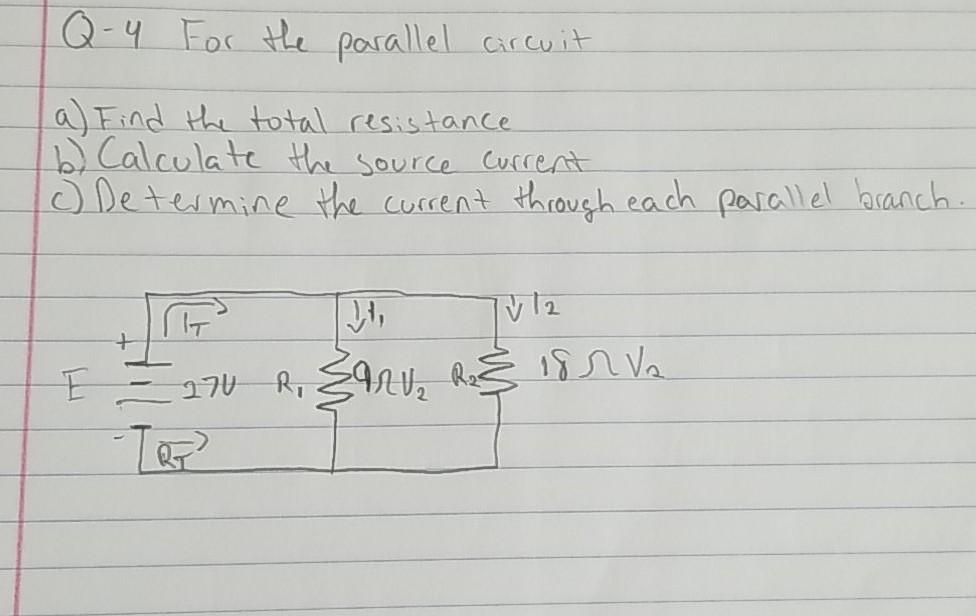 Q-4 For the parallel circuit
a) Find the total resistance
b) Calculate the source current
c) Determine the current through each parallel branch.
I_T ↓I₁ ↓I₂
+
E 27V R₁ 9Ω V₂ R₂ 18Ω V₂
-
R_T